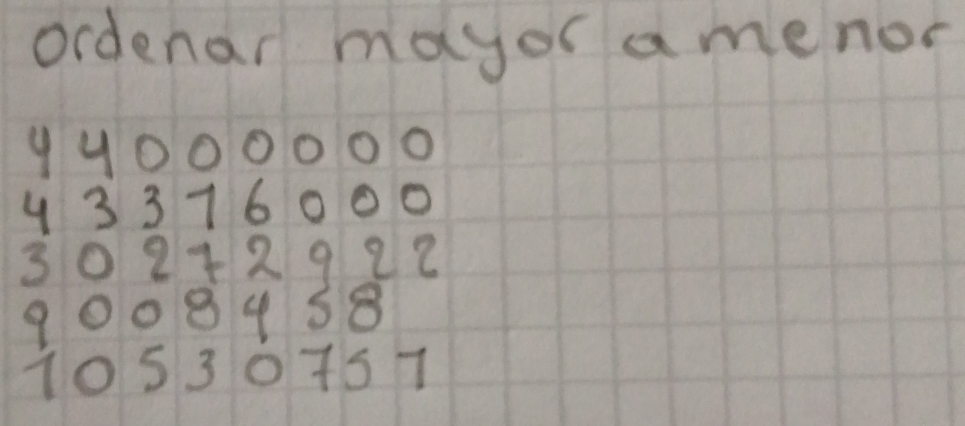 ordenar mayor a menor
44000000
43376000
30272922
9008458
10530751